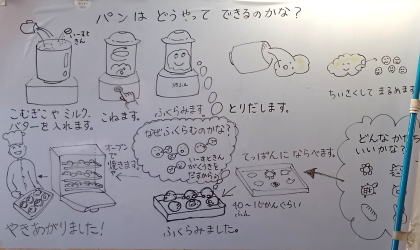 パンは どうやって できるのかな?
いーすと
きん
こむぎこや ミルク、
バターを入れます。
こねます。
ふくらみます。
とりだします。
ちいさくして まるめます
なぜふくらむのかな?
いーすときん
がくうきを
だすから。
オーブン
で
焼きます。
てっぱんに ならべます。
どんなかたち
いいかな?
40~1じかんぐらい
ふん
ふくらみました。
やきあがりました!